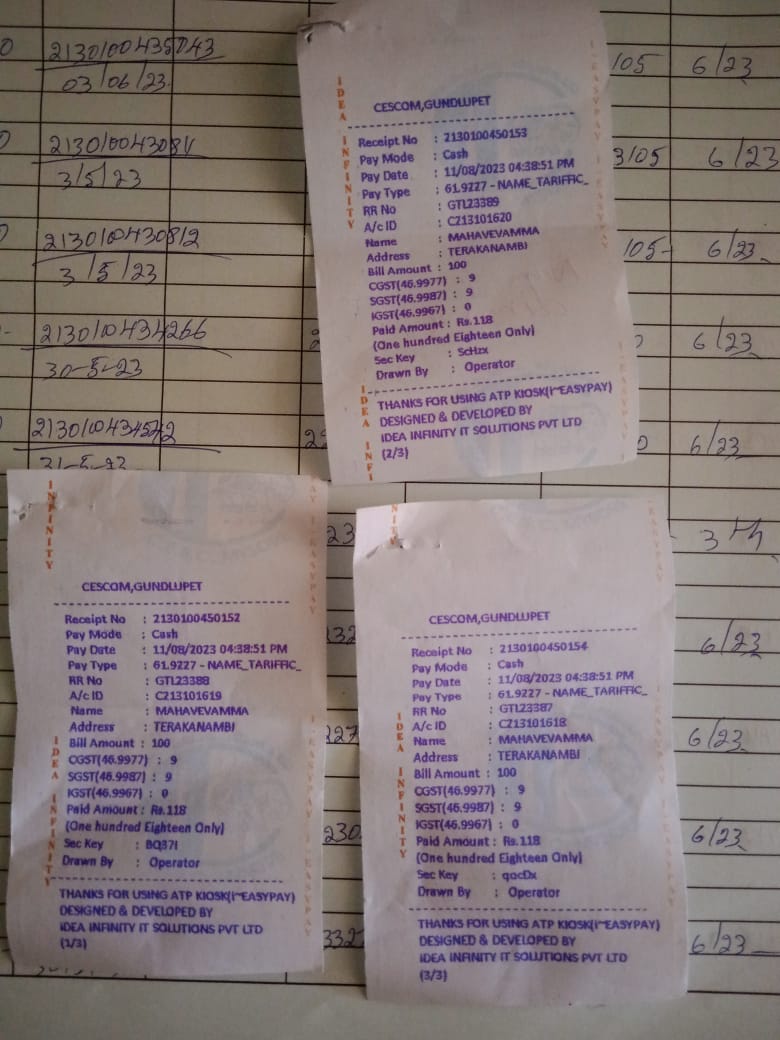 2130100435043
03/06/23
105 6/23
2130100430811
3/5/23
3/05 6/23
2130100430812
3/5/23
105- 6/23
2130100434266
30-5-23
6/23
2130100434542
31-5-23
6/23
IDEA INFINITY
I-EASYPAY I-EASYPAY
CESCOM,GUNDLUPET
Receipt No : 2130100450153
Pay Mode : Cash
Pay Date : 11/08/2023 04:38:51 PM
Pay Type : 61.9227 - NAME_TARIFFIC_
RR No : GTL23389
A/c ID : CZ13101620
Name : MAHAVEVAMMA
Address : TERAKANAMBI
Bill Amount : 100
CGST(46.9977) : 9
SGST(46.9987) : 9
IGST(46.9967) : 0
Paid Amount : Rs.118
(One hundred Eighteen Only)
Sec Key : ScHzx
Drawn By : Operator
THANKS FOR USING ATP KIOSK(i~EASYPAY)
DESIGNED & DEVELOPED BY
IDEA INFINITY IT SOLUTIONS PVT LTD
(2/3)
IDEA INFI
INFINITY
CESCOM,GUNDLUPET
Receipt No : 2130100450152
Pay Mode : Cash
Pay Date : 11/08/2023 04:38:51 PM
Pay Type : 61.9227 - NAME_TARIFFIC_
RR No : GTL23388
A/c ID : C213101619
Name : MAHAVEVAMMA
Address : TERAKANAMBI
Bill Amount : 100
CGST(46.9977) : 9
SGST(46.9987) : 9
IGST(46.9967) : 0
Paid Amount : Rs.118
(One hundred Eighteen Only)
Sec Key : BQ37I
Drawn By : Operator
THANKS FOR USING ATP KIOSK(i~EASYPAY)
DESIGNED & DEVELOPED BY
IDEA INFINITY IT SOLUTIONS PVT LTD
(1/3)
IDEA INFINITY
CESCOM,GUNDLUPET
Receipt No : 2130100450154
Pay Mode : Cash
Pay Date : 11/08/2023 04:38:51 PM
Pay Type : 61.9227 - NAME_TARIFFIC_
RR No : GTL23387
A/c ID : CZ13101618
Name : MAHAVEVAMMA
Address : TERAKANAMBI
Bill Amount : 100
CGST(46.9977) : 9
SGST(46.9987) : 9
IGST(46.9967) : 0
Paid Amount : Rs.118
(One hundred Eighteen Only)
Sec Key : qocDx
Drawn By : Operator
THANKS FOR USING ATP KIOSK(i~EASYPAY)
DESIGNED & DEVELOPED BY
IDEA INFINITY IT SOLUTIONS PVT LTD
(3/3)
IDEA INFINITY
6/23
227 6/23
230 6/23
332 6/23